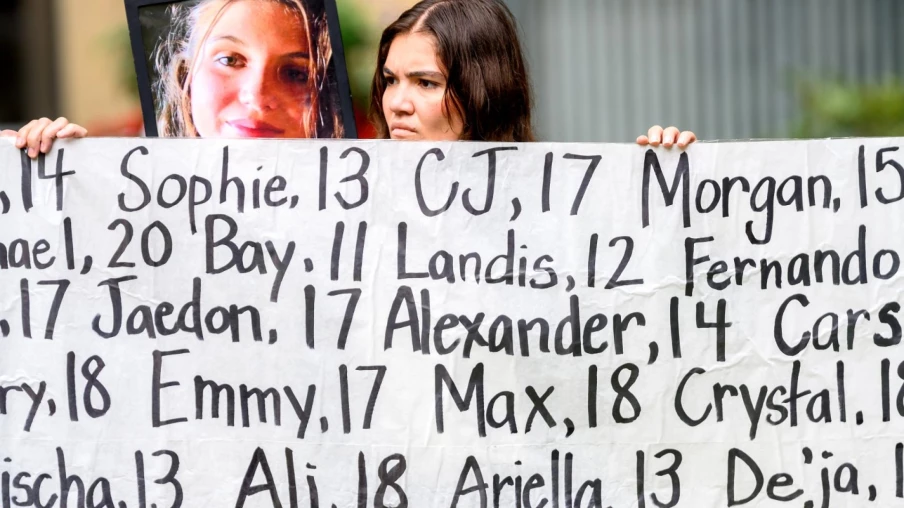 , 14 Sophie, 13 CJ, 17 Morgan, 15
ael, 20 Bay. 11 Landis, 12 Fernando
, 17 Jaedon, 17 Alexander, 14 Cars
ry, 18 Emmy, 17 Max, 18 Crystal, 18
ischa, 13 Ali, 18 Ariella, 13 De'ja, 1